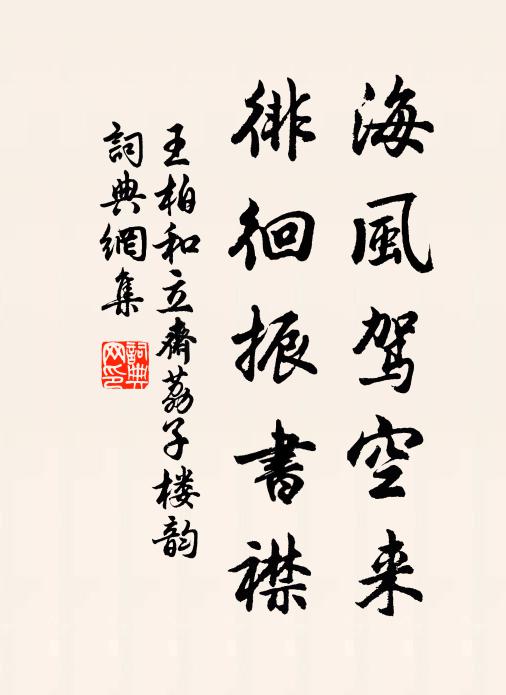 海風駕空来
徘徊振書襟
王柏和立齋荔子楼韵
詞典網集
詞典网印